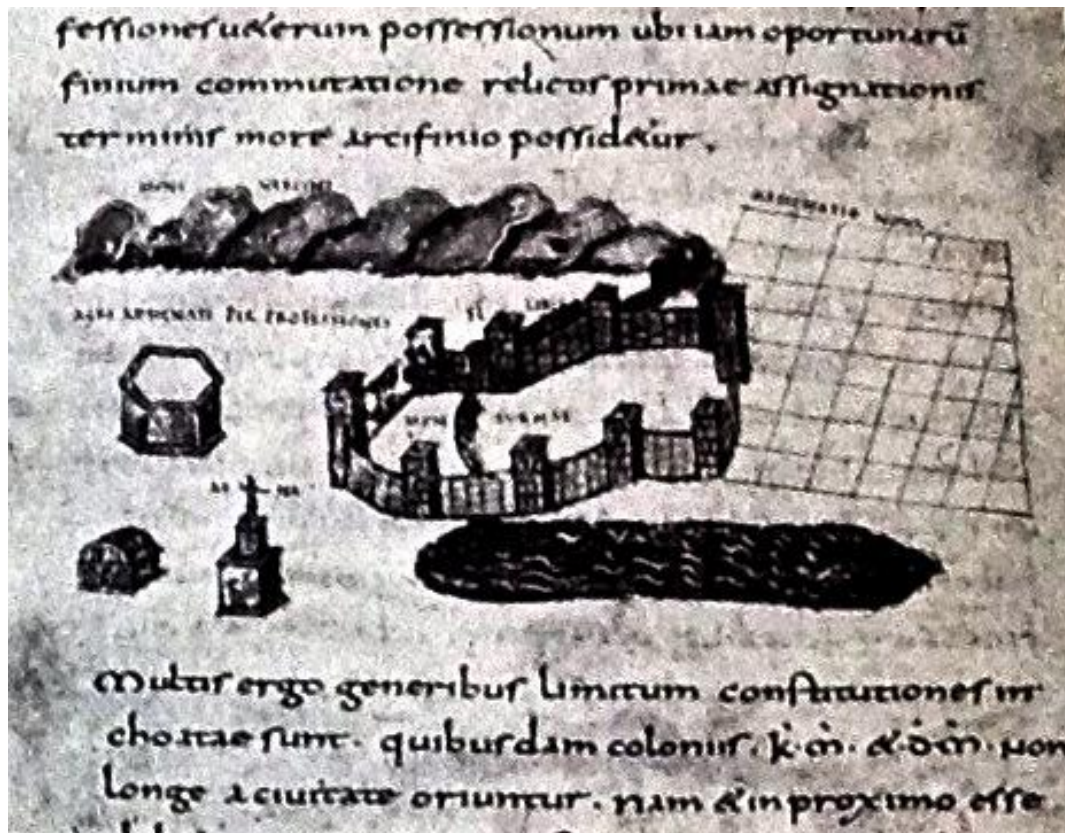 fessiones ueterum possessionum ubi iam oportunarū
finium commutatione relictis primae assignationis
terminis more arcifinio possidetur.
MONS
ADSIGNATIO NOVA
AGRI ADSIGNATI PER PROFESSIONES
Multis ergo generibus limitum constitutiones in
choatae sunt. quibusdam coloniis. k·m· & d·m· non
longe a ciuitate oriuntur. nam & in proximo esse